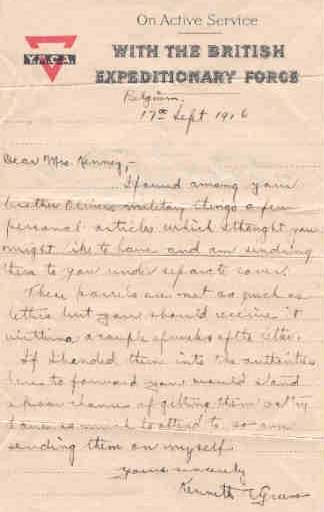 Y.M.C.A.
On Active Service
WITH THE BRITISH
EXPEDITIONARY FORCE
Belgium.
17th Sept 1916
Dear Mrs. Kenney,-
I found among your
brother military things a few
personal articles which I thought you
might like to have and am sending
them to you under separate cover.
These parcels are not as quick as
letters but you should receive it
within a couple of weeks of the letter.
If I handed them into the authorities
here to forward you would stand
a poor chance of getting them
have so much to attend to so am
sending them on myself.
Yours sincerely
Kenneth